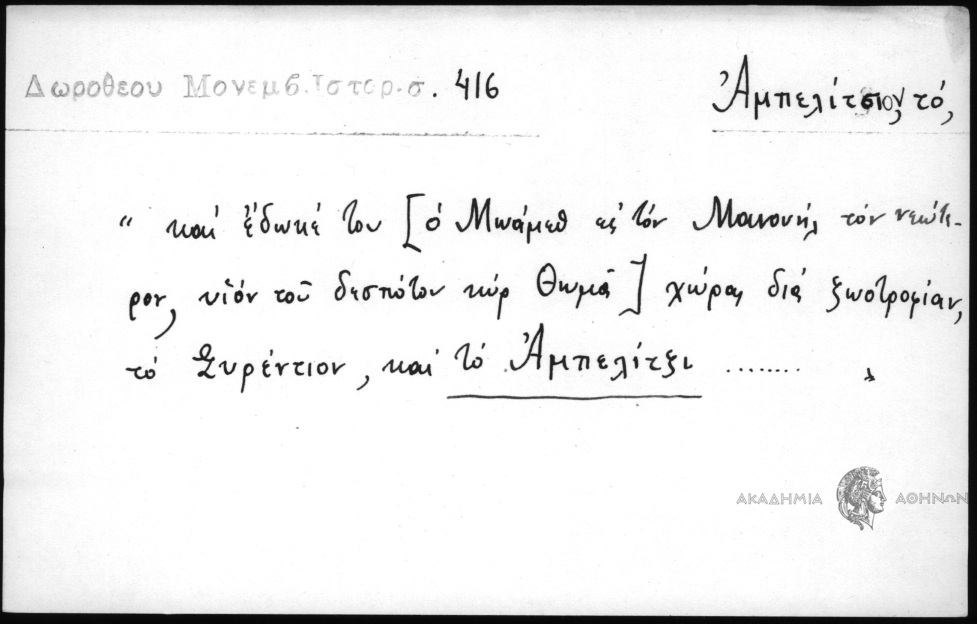 Δωροθεου Μονεμβ. Ιστορ.σ. 416
Ἀμπελίτσιον, τό,
“ καί ἔδωκέ του [ὁ Μωάμεθ εἰς τόν Μανουήλ τόν νεώτε-
ρον, υἱόν τοῦ δεσπότου κύρ Θωμᾶ] χώρας διά ζωοτροφίαν,
τό Συρέντζιον, καί τό Ἀμπελίτζι ........ „
ΑΚΑΔΗΜΙΑ ΑΘΗΝΩΝ